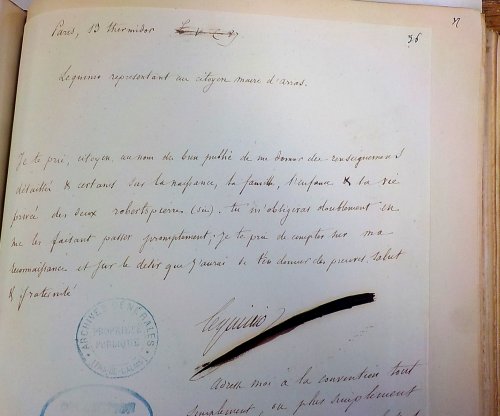 37
36
Paris, 13 thermidor
Lequinio représentant au citoyen maire d'arras.
Je te prie, citoyen, au nom du bien public de me donner des renseignements
détaillés & certains sur la naissance, la famille, l'enfance & la vie
privée des deux roberts pierres (sic). tu m'obligeras doublement en
me les faisant passer promptement; je te prie de compter sur ma
reconnaissance et sur le desir que j'aurai de t'en donner des preuves, salut
& fraternité
Lequinio
ARCHIVES GÉNÉRALES
PROPRIÉTÉ
PUBLIQUE
(PAS-DE-CALAIS)
Adresse moi à la convention tout
simplement ou plus simplement